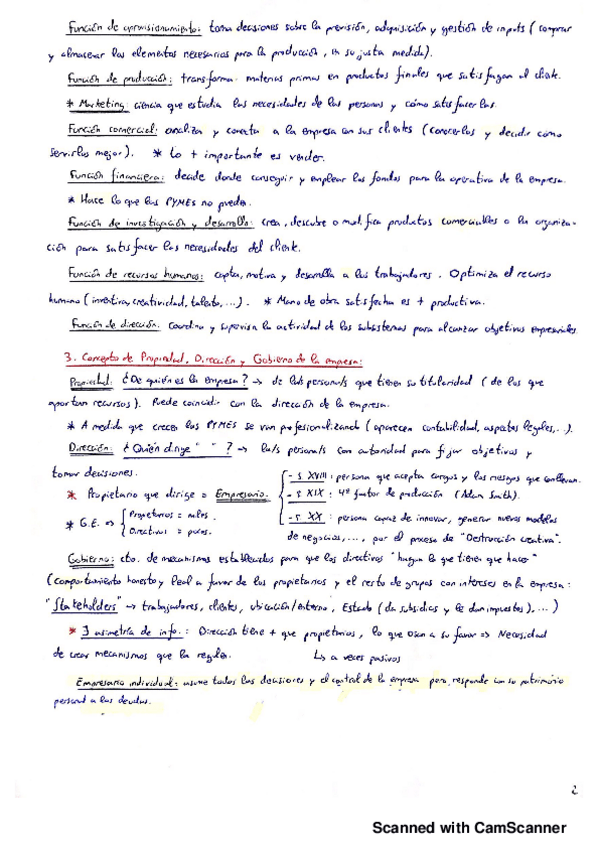 Función de aprovisionamiento: toma decisiones sobre la previsión, adquisición y gestión de inputs (comprar
y almacenar los elementos necesarios para la producción, en su justa medida).
Función de producción: transforma materias primas en productos finales que satisfagan al cliente.
* Marketing: ciencia que estudia las necesidades de las personas y cómo satisfacerlas.
Función comercial: analiza y conecta a la empresa con sus clientes (conocerlos y decidir como
servirlos mejor). * Lo + importante es vender.
Función financiera: decide donde conseguir y emplear los fondos para la operativa de la empresa.
* Hace lo que las PYMEs no pueden.
Función de investigación y desarrollo: crea, descubre o modifica productos comerciables o la organiza-
ción para satisfacer las necesidades del cliente.
Función de recursos humanos: capta, motiva y desarrolla a los trabajadores. Optimiza el recurso
humano (inventiva, creatividad, talento, ...). * Mano de obra satisfecha es + productiva.
Función de dirección: Coordina y supervisa la actividad de los subsistemas para alcanzar objetivos empresariales.
3. Concepto de Propiedad, Dirección y Gobierno de la empresa:
Propiedad: ¿De quién es la empresa? → de la/s persona/s que tienen su titularidad (de los que
aportan recursos). Puede coincidir con la dirección de la empresa.
* A medida que crecen las PYMES se van profesionalizando (aparecen contabilidad, aspectos legales, ..).
Dirección: ¿Quién dirige " " ? → la/s persona/s con autoridad para fijar objetivos y
tomar decisiones.
- s. XVIII: persona que acepta cargos y los riesgos que conllevan.
* Propietario que dirige = Empresario.
- s. XIX: 4º factor de producción (Adam Smith).
* G.E. ⇒ Propietarios = muchos. Directivos = pocos.
- s. XX: persona capaz de innovar, generar nuevos modelos
de negocios, ..., por el proceso de "Destrucción creativa".
Gobierno: cto. de mecanismos establecidos para que los directivos "hagan lo que tienen que hacer"
(comportamiento honesto y leal a favor de los propietarios y el resto de grupos con intereses en la empresa:
"Stakeholders" → trabajadores, clientes, ubicación/entorno, Estado (da subsidios y le dan impuestos), ...)
* ∃ asimetría de info.: Dirección tiene + que propietarios, lo que usan a su favor ⇒ Necesidad
de crear mecanismos que la regulen. ↳ a veces pasivos
Empresario individual: asume todas las decisiones y el control de la empresa pero responde con su patrimonio
personal a las deudas.
2
Scanned with CamScanner